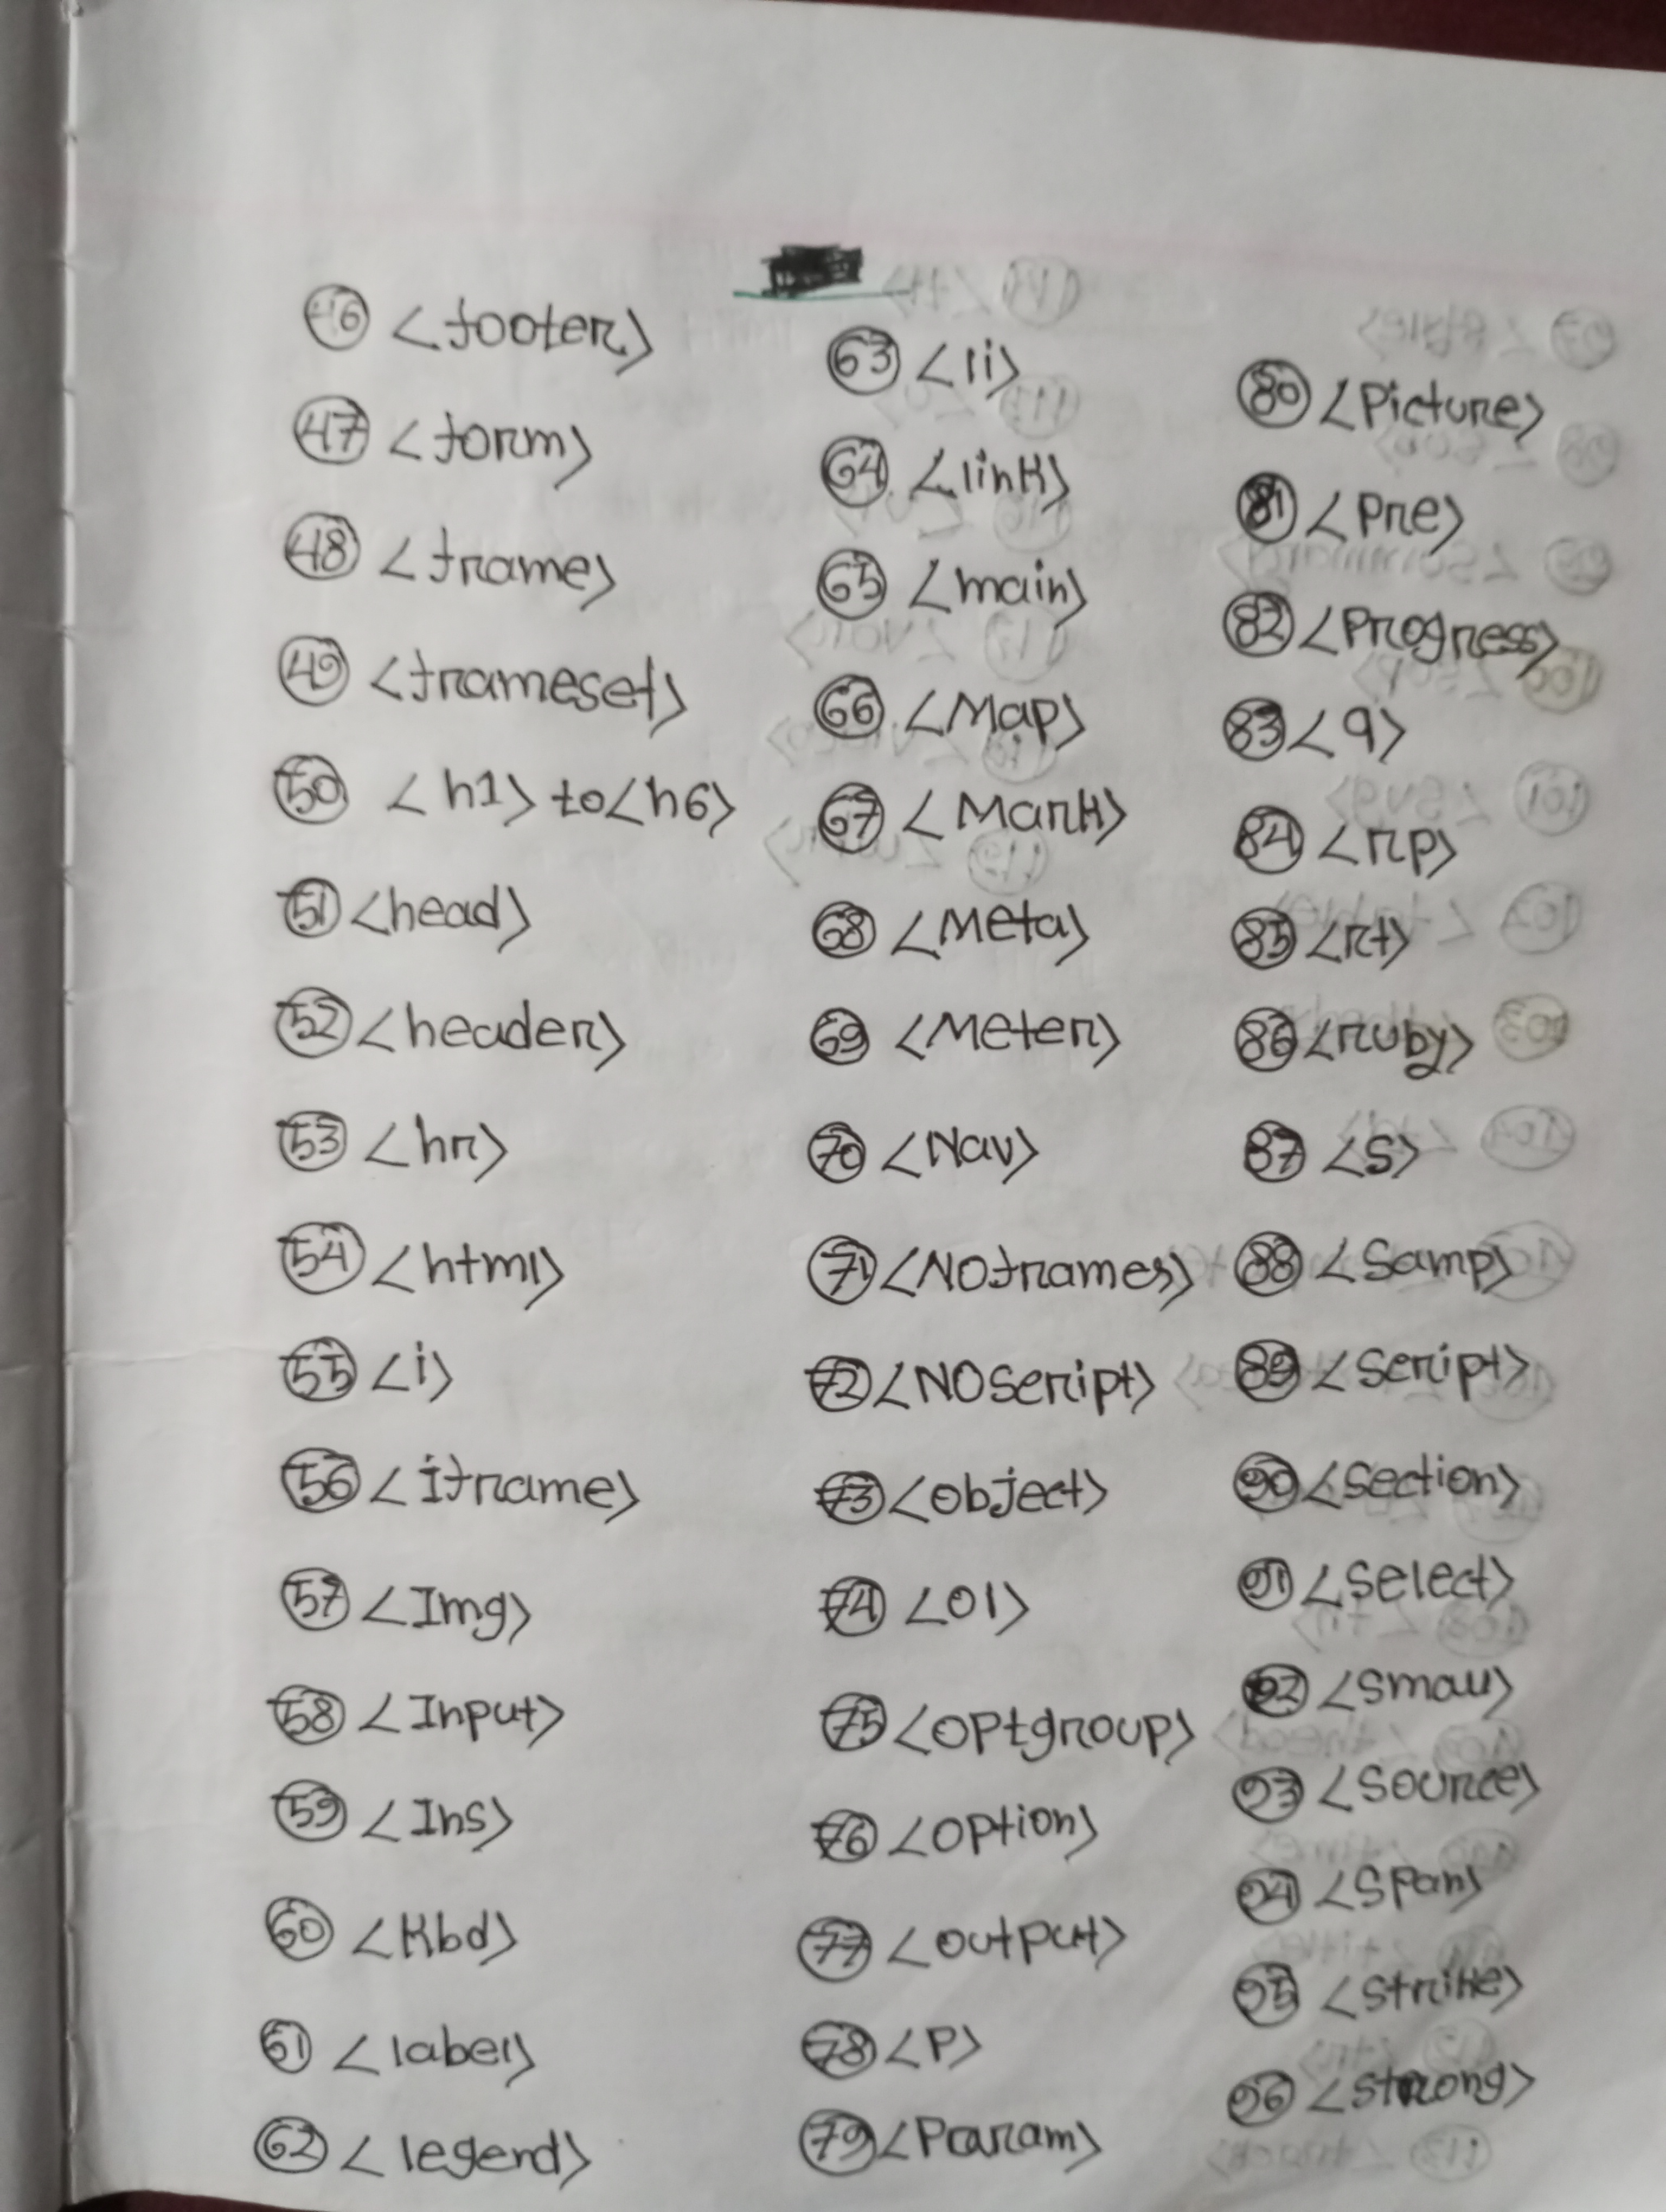 46 <footer>
47 <form>
48 <frame>
49 <frameset>
50 <h1> to <h6>
51 <head>
52 <header>
53 <hr>
54 <html>
55 <i>
56 <iframe>
57 <Img>
58 <Input>
59 <Ins>
60 <Kbd>
61 <label>
62 <legend>
63 <li>
64 <link>
65 <main>
66 <Map>
67 <Mark>
68 <Meta>
69 <Meter>
70 <Nav>
71 <NOframes>
72 <NOscript>
73 <object>
74 <ol>
75 <optgroup>
76 <option>
77 <output>
78 <P>
79 <Param>
80 <Picture>
81 <Pre>
82 <Progress>
83 <q>
84 <rp>
85 <rt>
86 <ruby>
87 <S>
88 <Samp>
89 <Script>
90 <section>
91 <select>
92 <small>
93 <source>
94 <span>
95 <strike>
96 <strong>